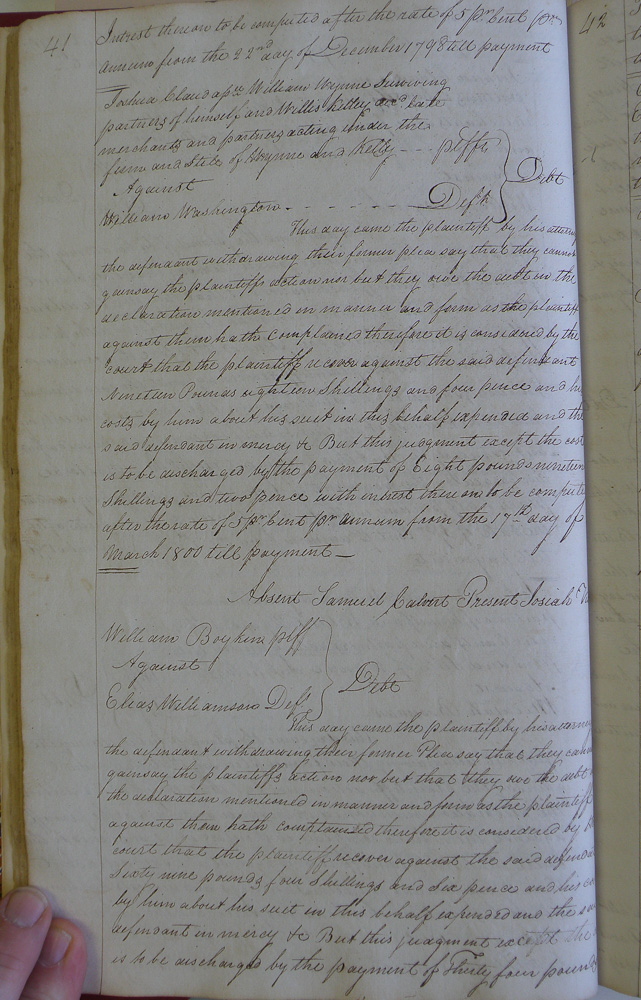 41
42
Interest thereon to be computed after the rate of 5 pr. Cent pr.
annum from the 22nd day of December 1798 till payment
Joshua Claud William Wynne Surviving
partners of himself and Willis Kelley decd. late
merchants and partners acting under the
firm and State of Wynne and Kelly - - - pltffs
Against
Debt
William Washington - - - - - - - Deft.
This day came the plaintiff by his attorney
the defendant withdrawing their former plea say that they cannot
gainsay the plaintiffs action nor but they owe the debt in the
declaration mentioned in manner and form as the plaintiff
against them hath Complained therefore it is considered by the
court that the plaintiff recover against the said defendant
Nineteen Pounds eighteen Shillings and four pence and his
costs by him about his suit in this behalf expended and the
said defendant in mercy &c But this judgment except the costs
is to be discharged by the payment of Eight pounds nineteen
Shillings and two pence with interest thereon to be compute
after the rate of 5 pr. Cent pr annum from the 17th day of
March 1800 till payment —
Absent Samuel Calvert Present Josiah
William Boykin plff
Against
Debt
Elias Williamson Deft.
This day came the plaintiff by his attorney
the defendant withdrawing their former Plea say that they cann
gainsay the plaintiffs action nor but that they owe the debt
the declaration mentioned in manner and form as the plaintiff
against them hath complained therefore it is considered by
court that the plaintiff recover against the said defenda
Sixty nine pounds four Shillings and Six pence and his co
by him about his suit in this behalf expended and the sa
defendant in mercy &c But this judgment except the
is to be discharged by the payment of Thirty four pounds